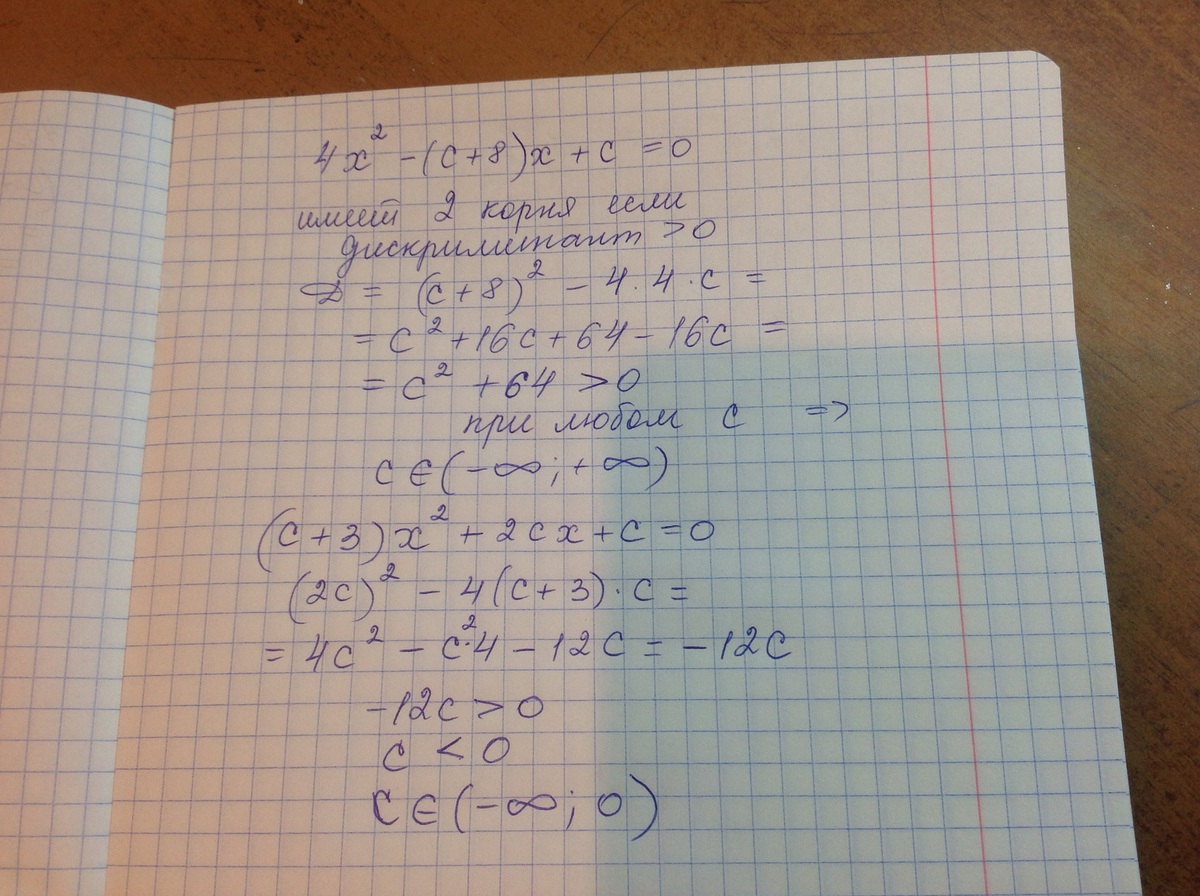 4x² - (c+8)x + c = 0
имеет 2 корня если
дискриминант > 0
D = (c+8)² - 4·4·c =
= c² + 16c + 64 - 16c =
= c² + 64 > 0
при любом c =>
c ∈ (-∞; +∞)
(c+3)x² + 2cx + c = 0
(2c)² - 4(c+3)·c =
= 4c² - c²·4 - 12c = -12c
-12c > 0
c < 0
c ∈ (-∞; 0)